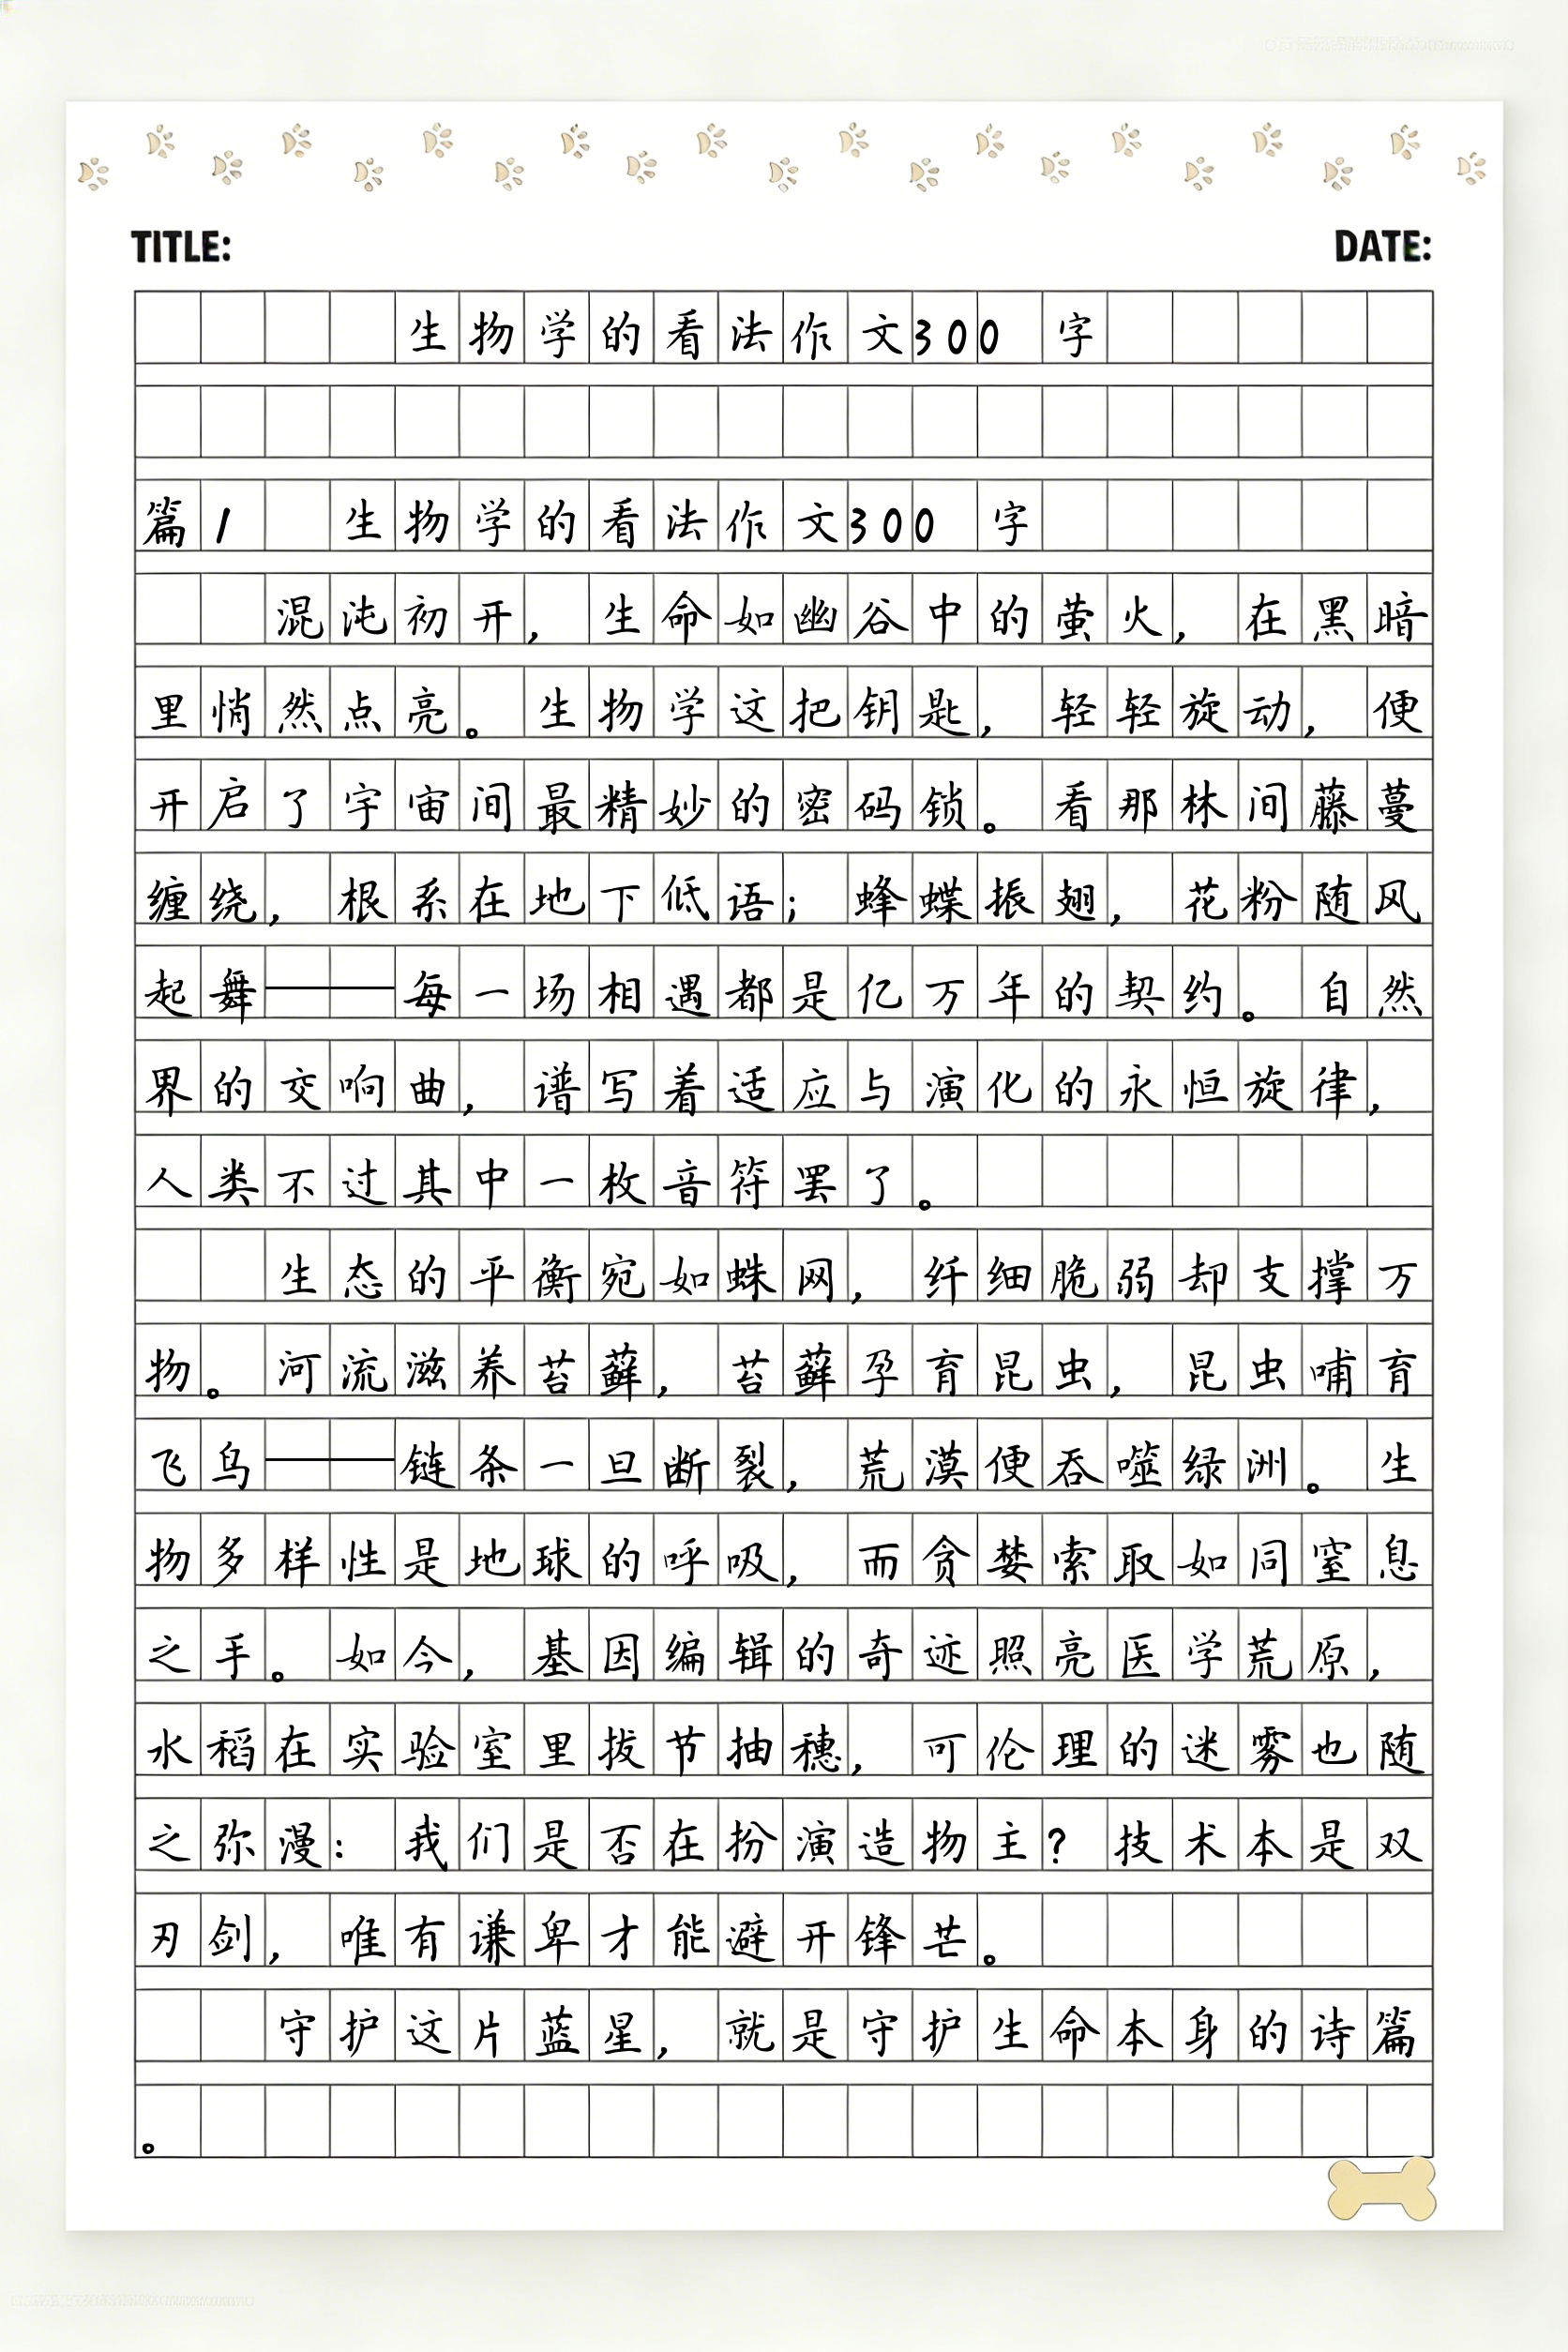 TITLE:
DATE:
生物学的看法作文300 字
篇1 生物学的看法作文300 字
混沌初开，生命如幽谷中的萤火，在黑暗
里悄然点亮。生物学这把钥匙，轻轻旋动，便
开启了宇宙间最精妙的密码锁。看那林间藤蔓
缠绕，根系在地下低语；蜂蝶振翅，花粉随风
起舞——每一场相遇都是亿万年的契约。自然
界的交响曲，谱写着适应与演化的永恒旋律，
人类不过其中一枚音符罢了。
生态的平衡宛如蛛网，纤细脆弱却支撑万
物。河流滋养苔藓，苔藓孕育昆虫，昆虫哺育
飞鸟——链条一旦断裂，荒漠便吞噬绿洲。生
物多样性是地球的呼吸，而贪婪索取如同窒息
之手。如今，基因编辑的奇迹照亮医学荒原，
水稻在实验室里拔节抽穗，可伦理的迷雾也随
之弥漫：我们是否在扮演造物主？技术本是双
刃剑，唯有谦卑才能避开锋芒。
守护这片蓝星，就是守护生命本身的诗篇
。